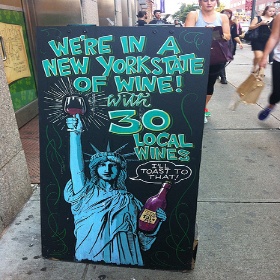 WE'RE IN A
NEW YORK STATE
OF WINE!
with
30
LOCAL
WINES
I'LL
TOAST TO
THAT!